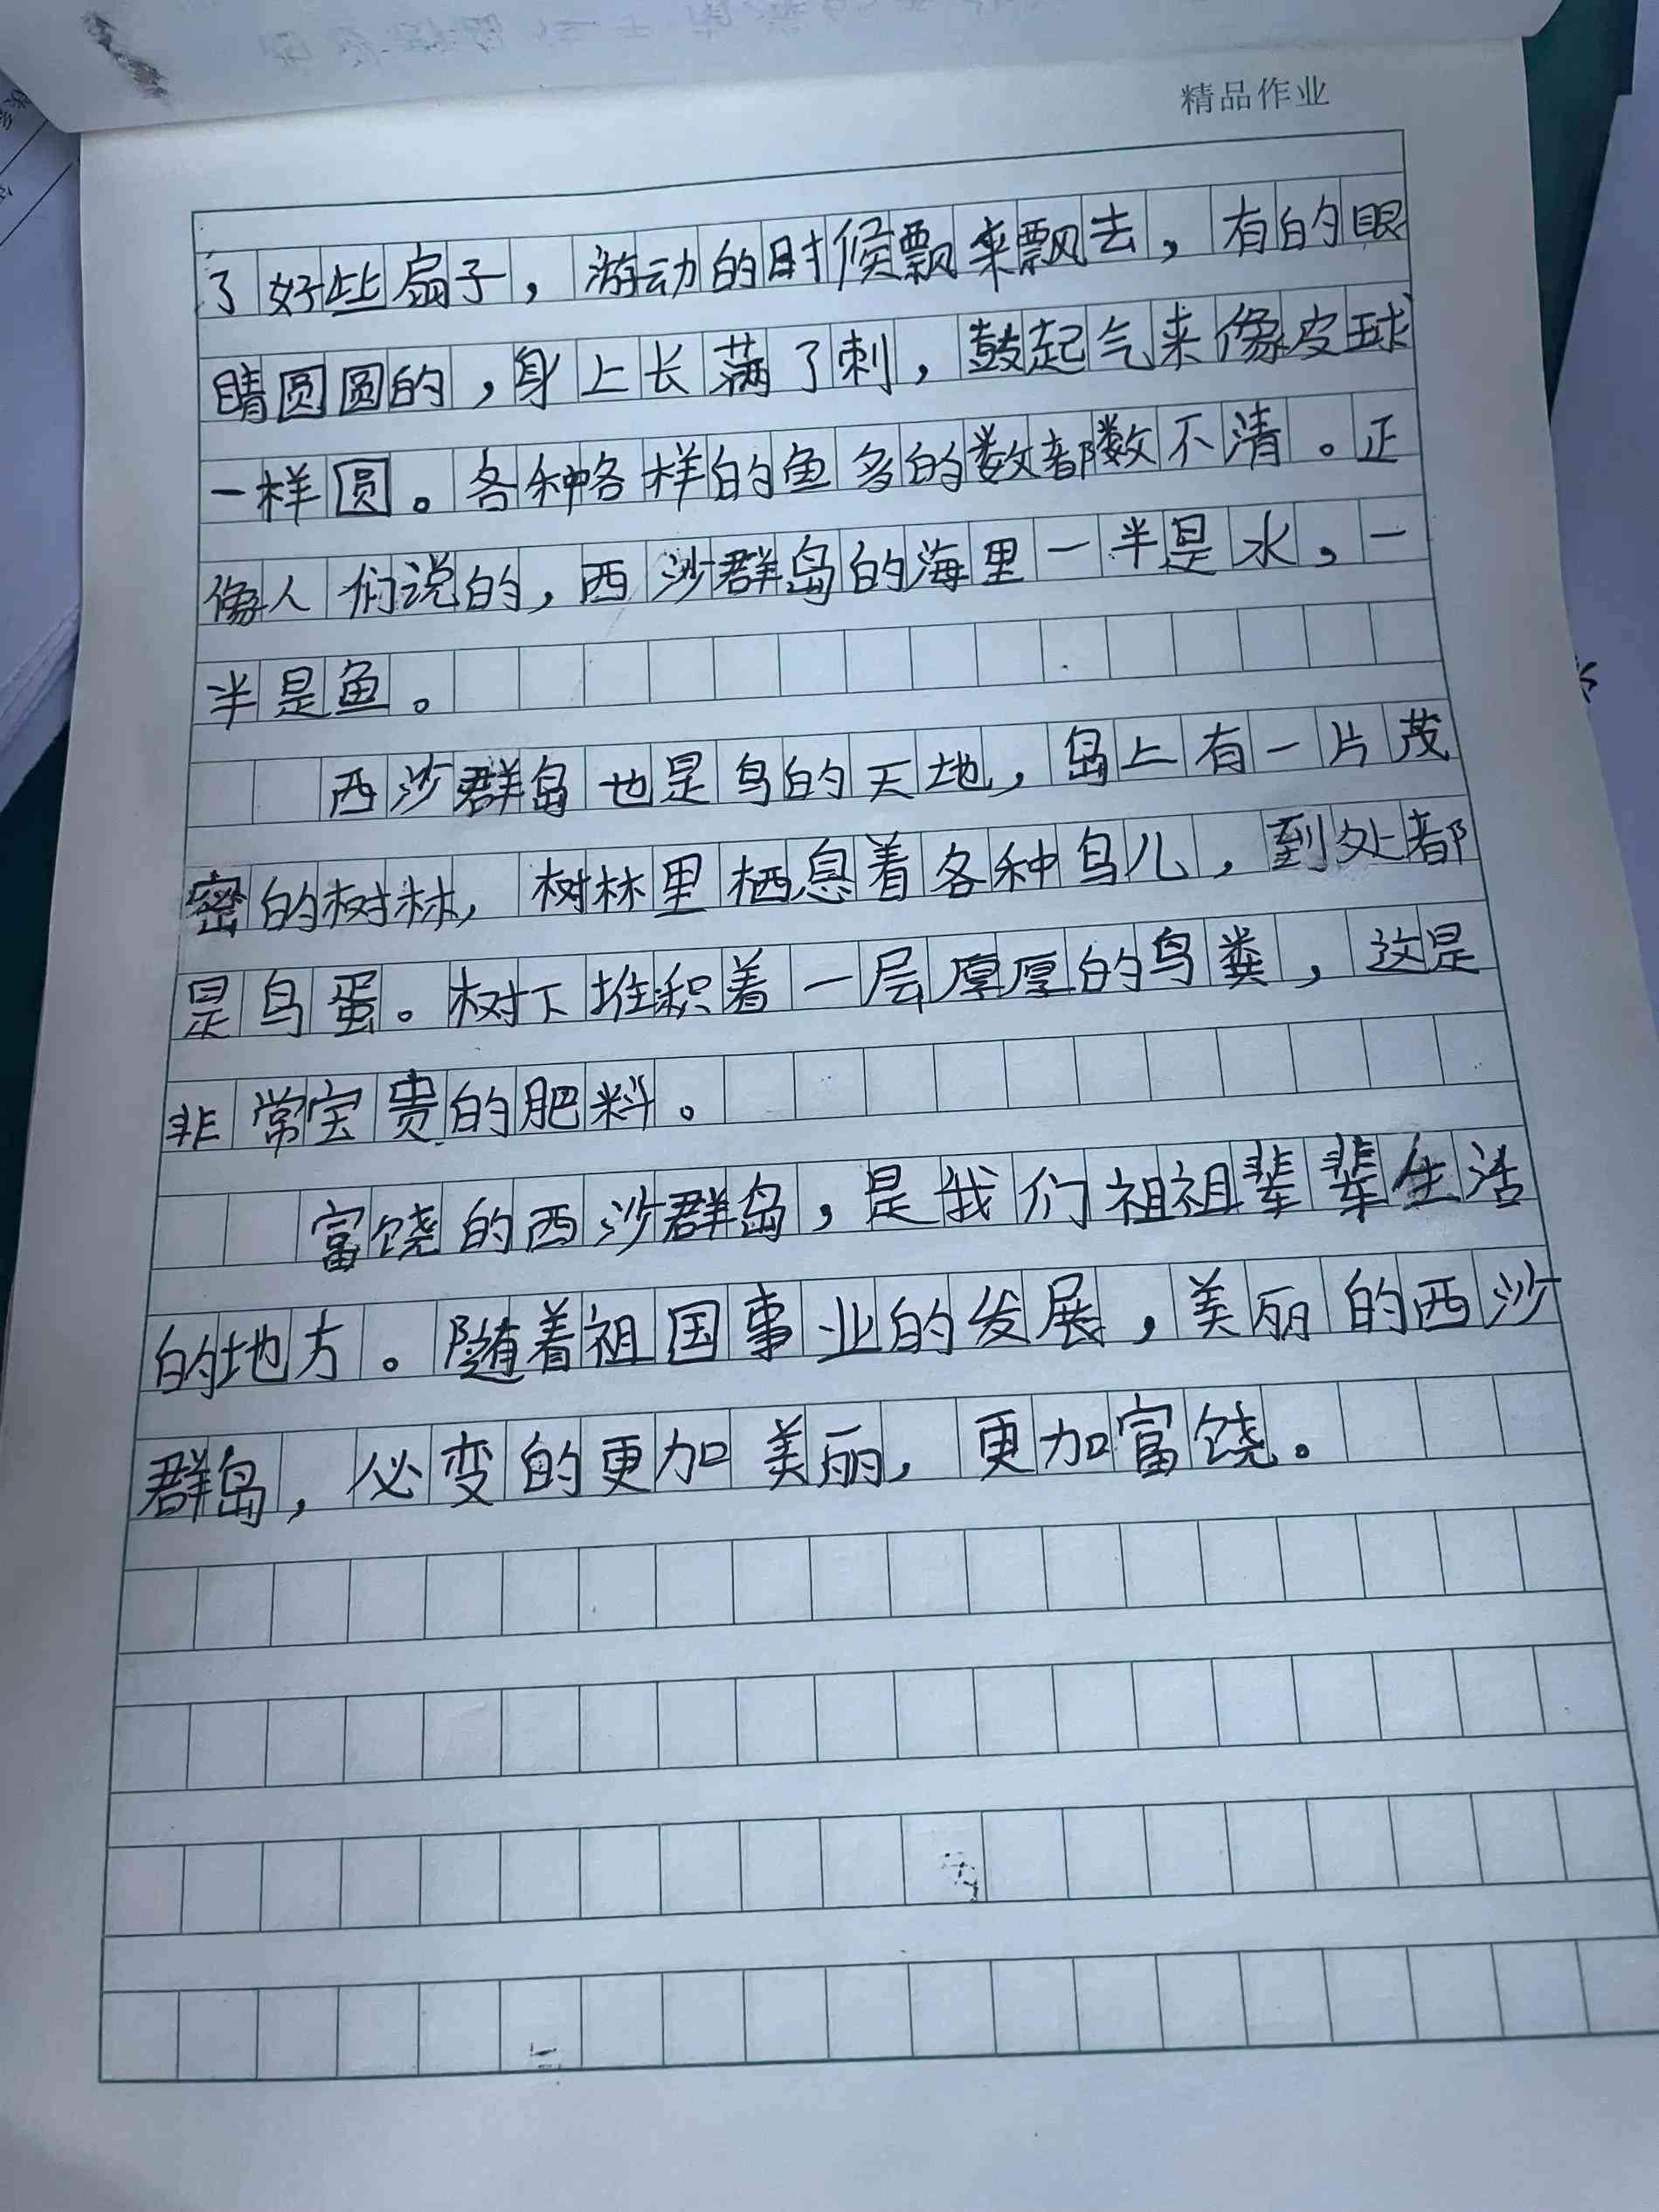 精品作业
了好些扇子，游动的时候飘来飘去，有的眼
睛圆圆的，身上长满了刺，鼓起气来像皮球
一样圆。各种各样的鱼多的数都数不清。正
像人们说的，西沙群岛的海里一半是水，一
半是鱼。
西沙群岛也是鸟的天地，岛上有一片茂
密的树林，树林里栖息着各种鸟儿，到处都
是鸟蛋。树下堆积着一层厚厚的鸟粪，这是
非常宝贵的肥料。
富饶的西沙群岛，是我们祖祖辈辈生活
的地方。随着祖国事业的发展，美丽的西沙
群岛，必变的更加美丽，更加富饶。